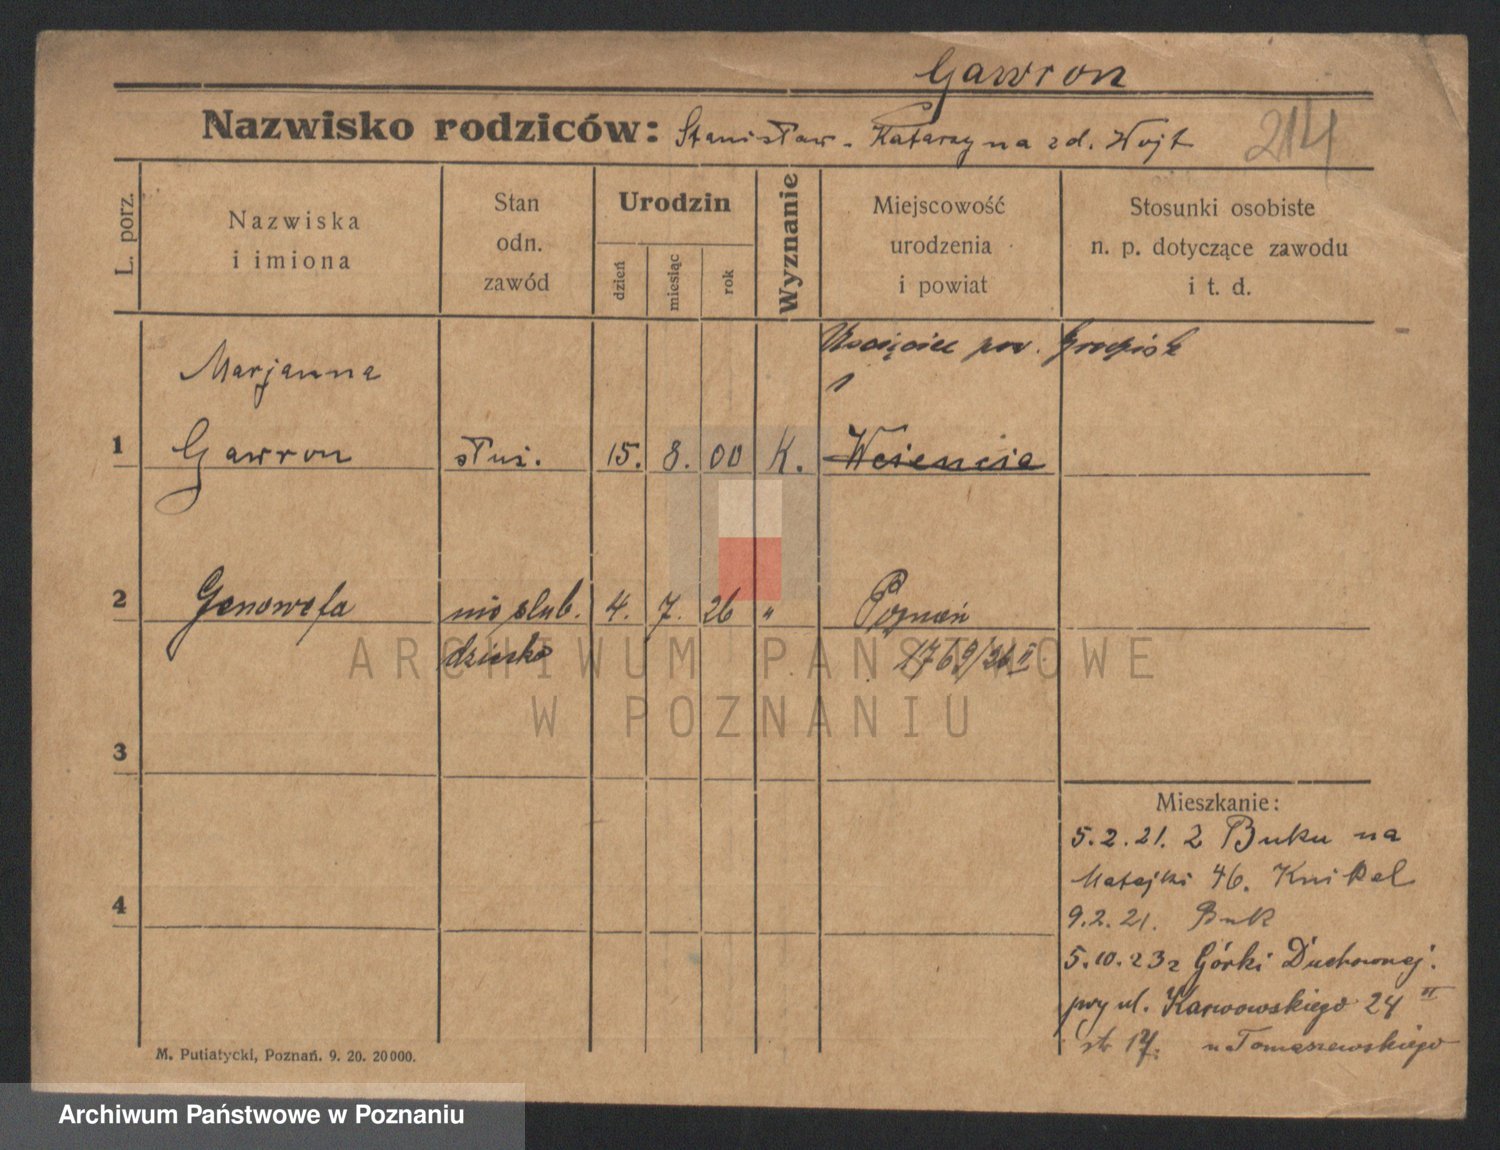 Gawron
Nazwisko rodziców: Stanisław - Katarzyna zd. Wojt
214
L. porz.
Nazwiska
i imiona
Stan
odn.
zawód
Urodzin
dzień
miesiąc
rok
Wyznanie
Miejscowość
urodzenia
i powiat
Stosunki osobiste
n. p. dotyczące zawodu
i t. d.
pow. Grodzisk
Marjanna
1 Gawron służ. 15. 8. 00 K.
2 Genowefa nieślub. 4. 7. 26 " Poznań
dziecko 1769/26 II
3
4
Mieszkanie:
5.2.21. z Buku na
Matejki 46. Knikel
9.2.21. Buk
5.10.23 z Górki Duchownej.
przy ul. Karwowskiego 24 II
str 17. u Tomaszewskiego
M. Putiatycki, Poznań. 9. 20. 20000.
ARCHIWUM PAŃSTWOWE
W POZNANIU
Archiwum Państwowe w Poznaniu